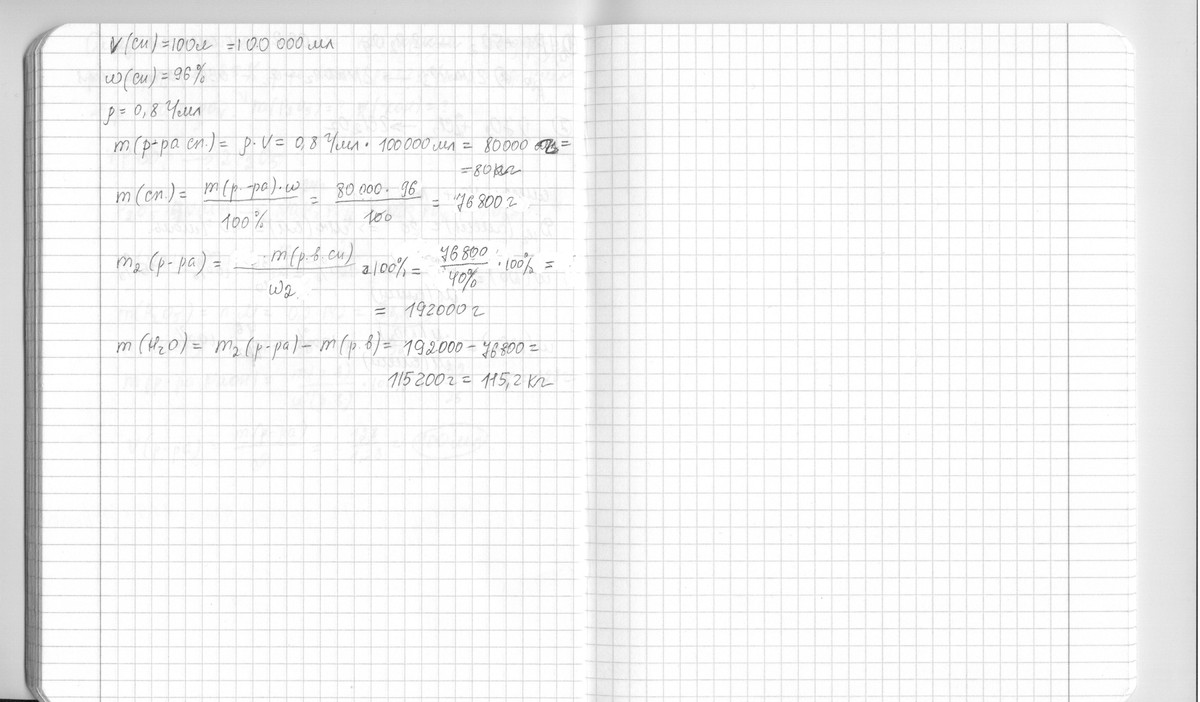 V(сп)=100л =100 000 мл
w(сп)=96%
ρ=0,8 г/мл
m(р-ра сп.)= ρ·V= 0,8 г/мл · 100000 мл = 80000 =
=80кг
m(сп.)= m(р.-ра)·w / 100% = 80 000 · 96 / 100 = 76800 г
m2(р-ра)= m(р.в.сп) / w2 · 100% = 76800 / 40% · 100% =
= 192000 г
m(H2O)= m2(р-ра)-m(р.в)= 192000 - 76800 =
115200г = 115,2 кг